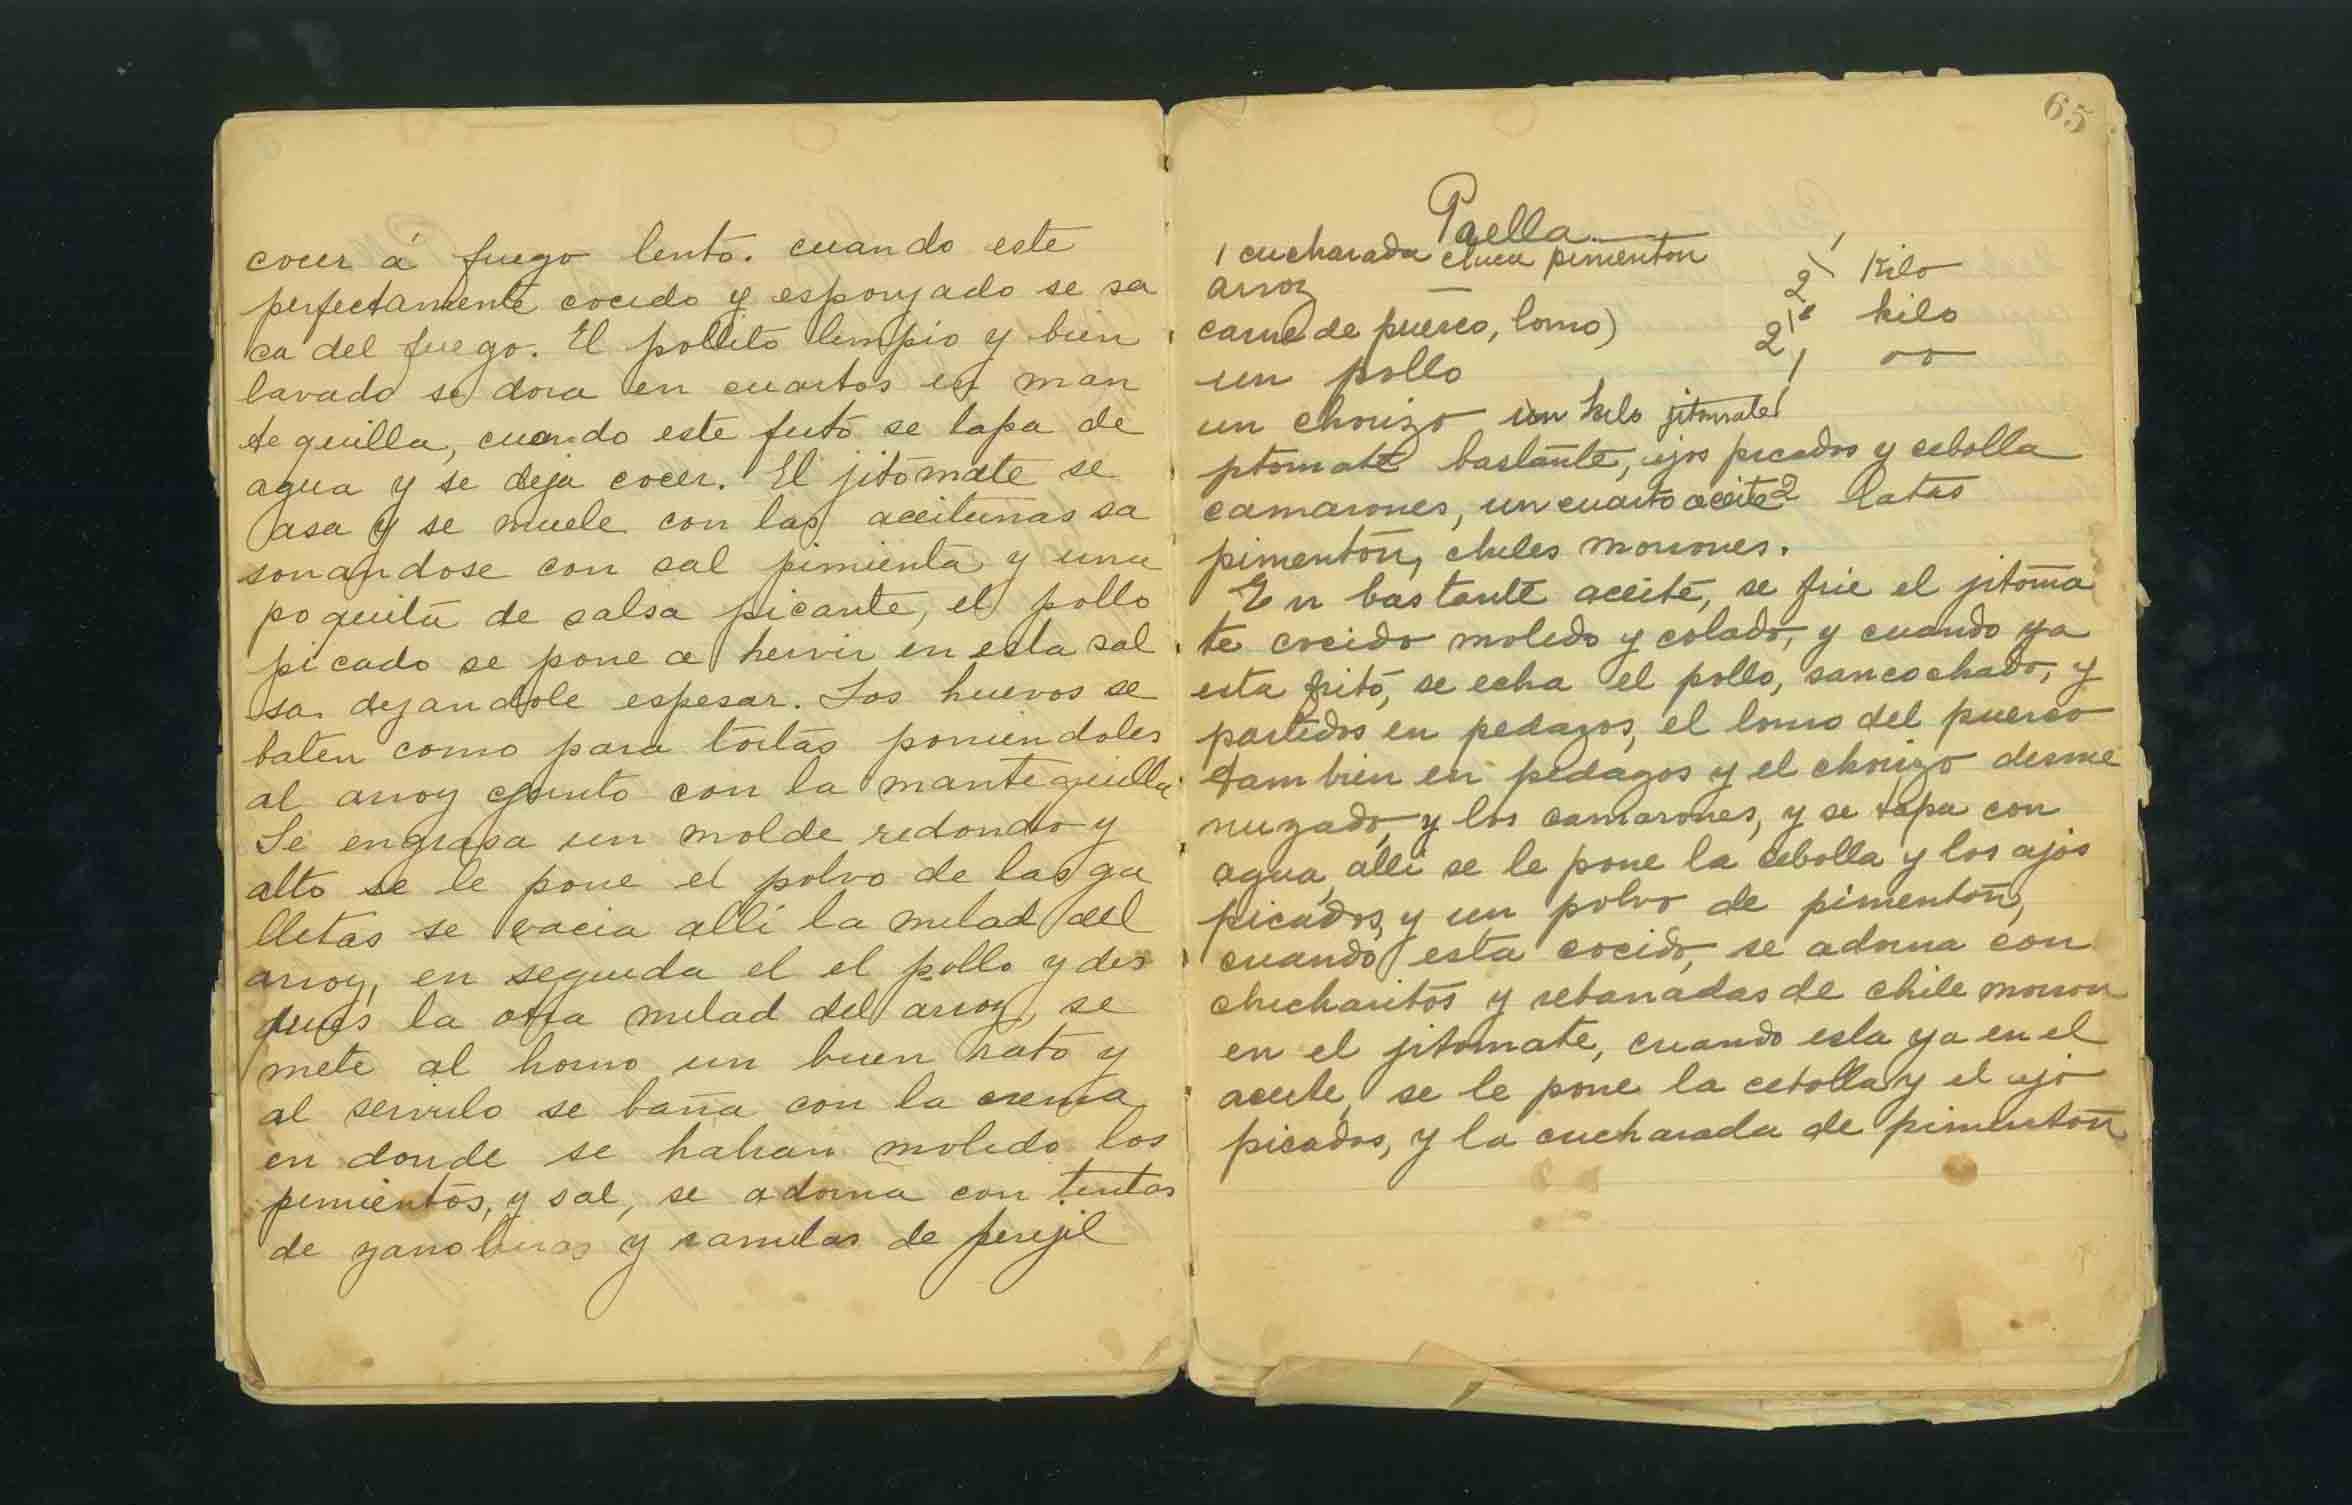 cocer á fuego lento. cuando este
perfectamente cocido y esponjado se sa
ca del fuego. El pollito limpio y bien
lavado se dora en cuartos en man
tequilla, cuando este frito se tapa de
agua y se deja cocer. El jitomate se
asa y se muele con las aceitunas sa
sonandose con sal pimienta y una
poquita de salsa picante, el pollo
picado se pone a hervir en esta sal
sa dejandole espesar. Los huevos se
baten como para tortas poniendoles
al arroz junto con la mantequilla
Se engrasa un molde redondo y
alto se le pone el polvo de las ga
lletas se vacia alli la mitad del
arroz, en seguida el el pollo y des
pues la otra mitad del arroz, se
mete al horno un buen rato y
al servirlo se baña con la crema
en donde se habran molido los
pimientos, y sal, se adorna con
de zanahorias y ramitas de perejil
65
Paella
1 cucharada chica pimenton
arroz 1/2 Kilo
carne de puerco, lomo) 1/2 kilo
un pollo 1
un chorizo un kilo jitomate
bastante, ajos picados y cebolla
camarones, un cuarto aceite 2 latas
pimentón, chiles morrones.
En bastante aceite, se frie el jitoma
te cocido molido y colado, y cuando ya
esta frito, se echa el pollo, sancochado, y
partidos en pedazos, el lomo del puerco
tambien en pedazos y el chorizo desme
nuzado, y los camarones, y se tapa con
agua, alli se le pone la cebolla y los ajos
picados, y un polvo de pimentón,
cuando esta cocido, se adorna con
chicharitos y rebanadas de chile morron
en el jitomate, cuando esta ya en el
aceite, se le pone la cebolla y el ajo
picados, y la cucharada de pimentón